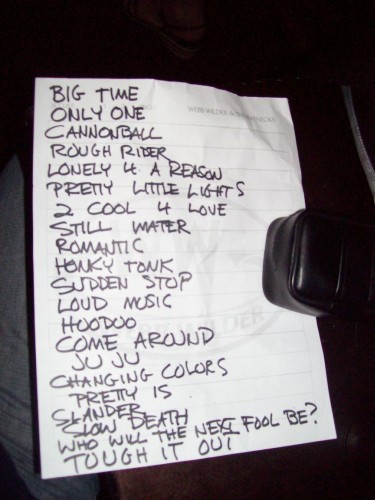 BIG TIME
ONLY ONE
CANNONBALL
ROUGH RIDER
LONELY 4 A REASON
PRETTY LITTLE LIGHTS
2 COOL 4 LOVE
STILL WATER
ROMANTIC
HONKY TONK
SUDDEN STOP
LOUD MUSIC
HOODOO
COME AROUND
JU JU
CHANGING COLORS
PRETTY IS
SLANDER
SLOW DEATH
WHO WILL THE NEXT FOOL BE?
TOUGH IT OUT